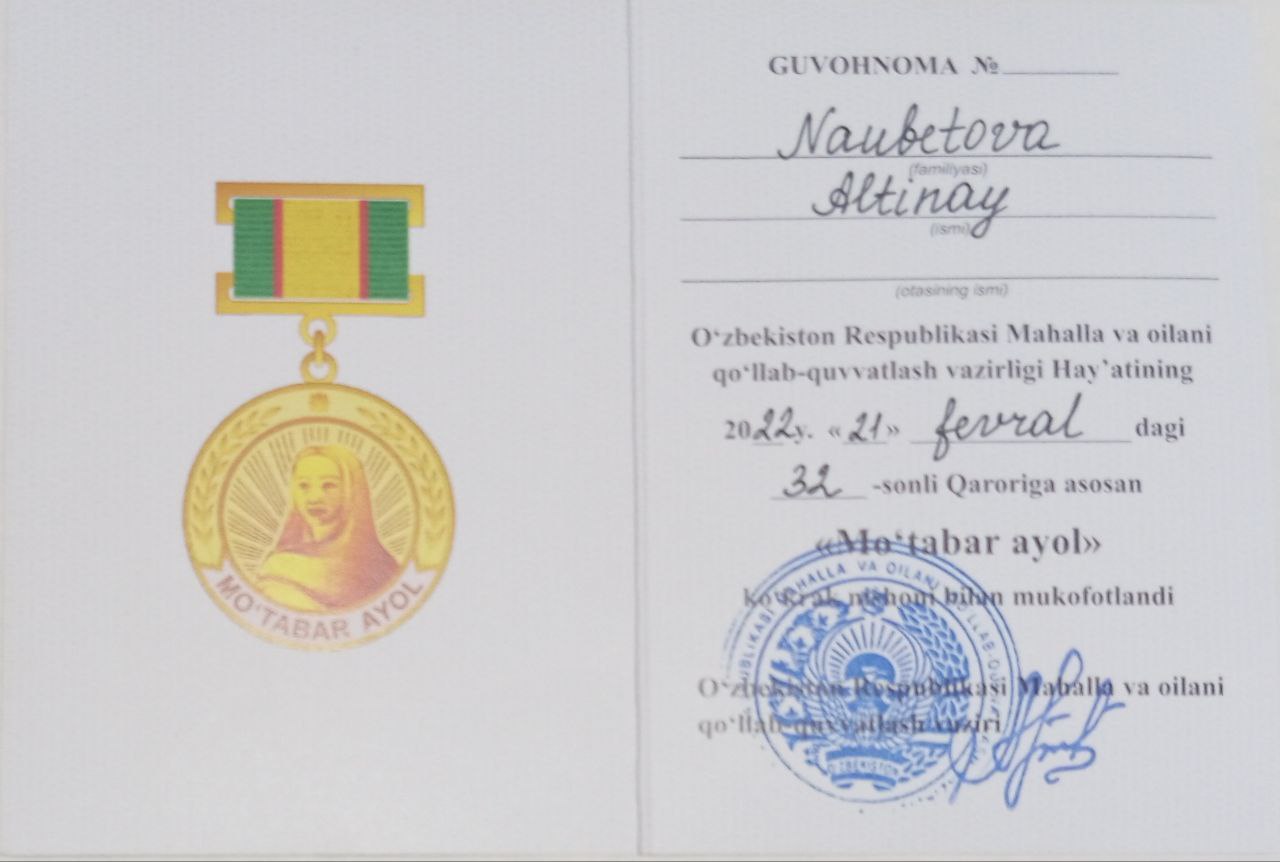 MO‘TABAR AYOL
GUVOHNOMA №
Naubetova
(familiyasi)
Altinay
(ismi)
(otasining ismi)
O‘zbekiston Respublikasi Mahalla va oilani
qo‘llab-quvvatlash vazirligi Hay’atining
2022y. «21» fevral dagi
32 -sonli Qaroriga asosan
«Mo‘tabar ayol»
Ko‘krak nishoni bilan mukofotlandi
O‘zbekiston Respublikasi Mahalla va oilani
qo‘llab-quvvatlash vaziri
MAHALLA VA OILANI
O‘ZBEKISTON